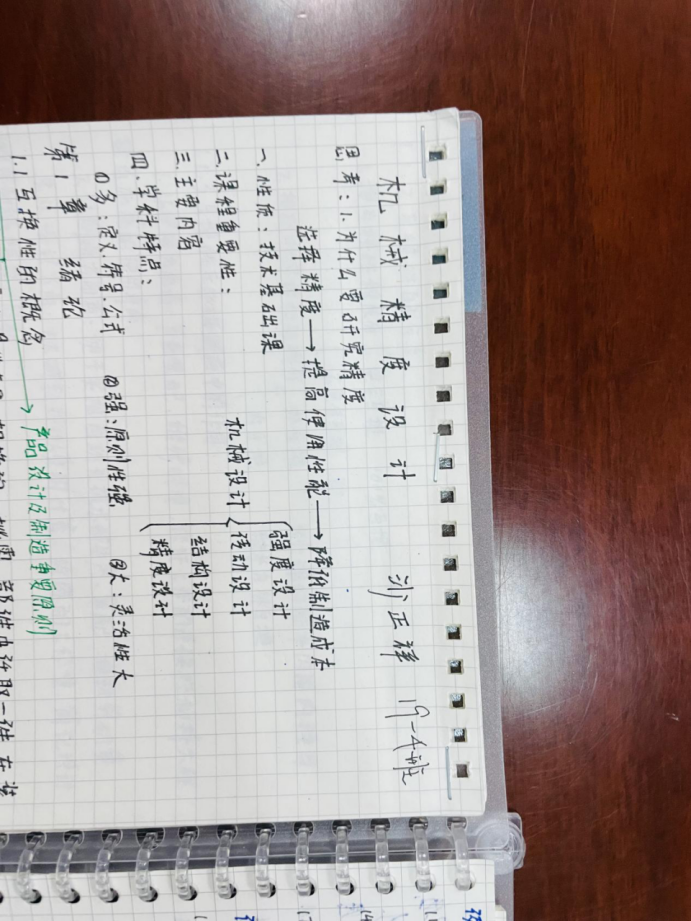 机械精度设计 刘正祥 19-4班
思考：1.为什么要研究精度
选择精度→提高使用性能→降低制造成本
一.性质：技术基础课
二.课程重要性：
机械设计
强度设计
传动设计
结构设计
精度设计
三.主要内容
四.学科特点：
①多：定义.符号.公式 ②强：原则性强 ③大：灵活性大
第1章 绪论
1.1 互换性的概念
→产品设计及制造重要原则